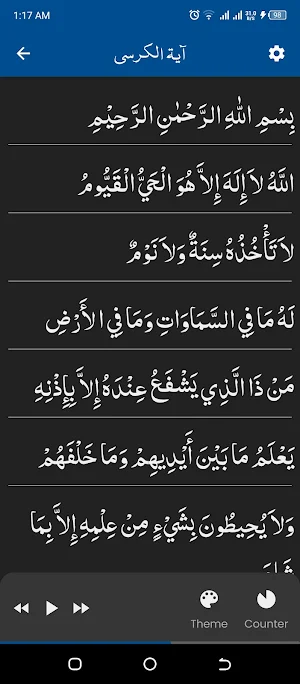 1:17 AM
31.0 K/s
98
آية الكرسى
بِسْمِ اللَّهِ الرَّحْمَٰنِ الرَّحِيْمِ
اللَّهُ لاَ إِلَهَ إِلاَّ هُوَ الْحَيُّ الْقَيُّومُ
لاَ تَأْخُذُهُ سِنَةٌ وَلاَ نَوْمٌ
لَهُ مَا فِي السَّمَاوَاتِ وَمَا فِي الأَرْضِ
مَنْ ذَا الَّذِي يَشْفَعُ عِنْدَهُ إِلاَّ بِإِذْنِهِ
يَعْلَمُ مَا بَيْنَ أَيْدِيهِمْ وَمَا خَلْفَهُمْ
وَلاَ يُحِيطُونَ بِشَيْءٍ مِنْ عِلْمِهِ إِلاَّ بِمَا
Theme
Counter